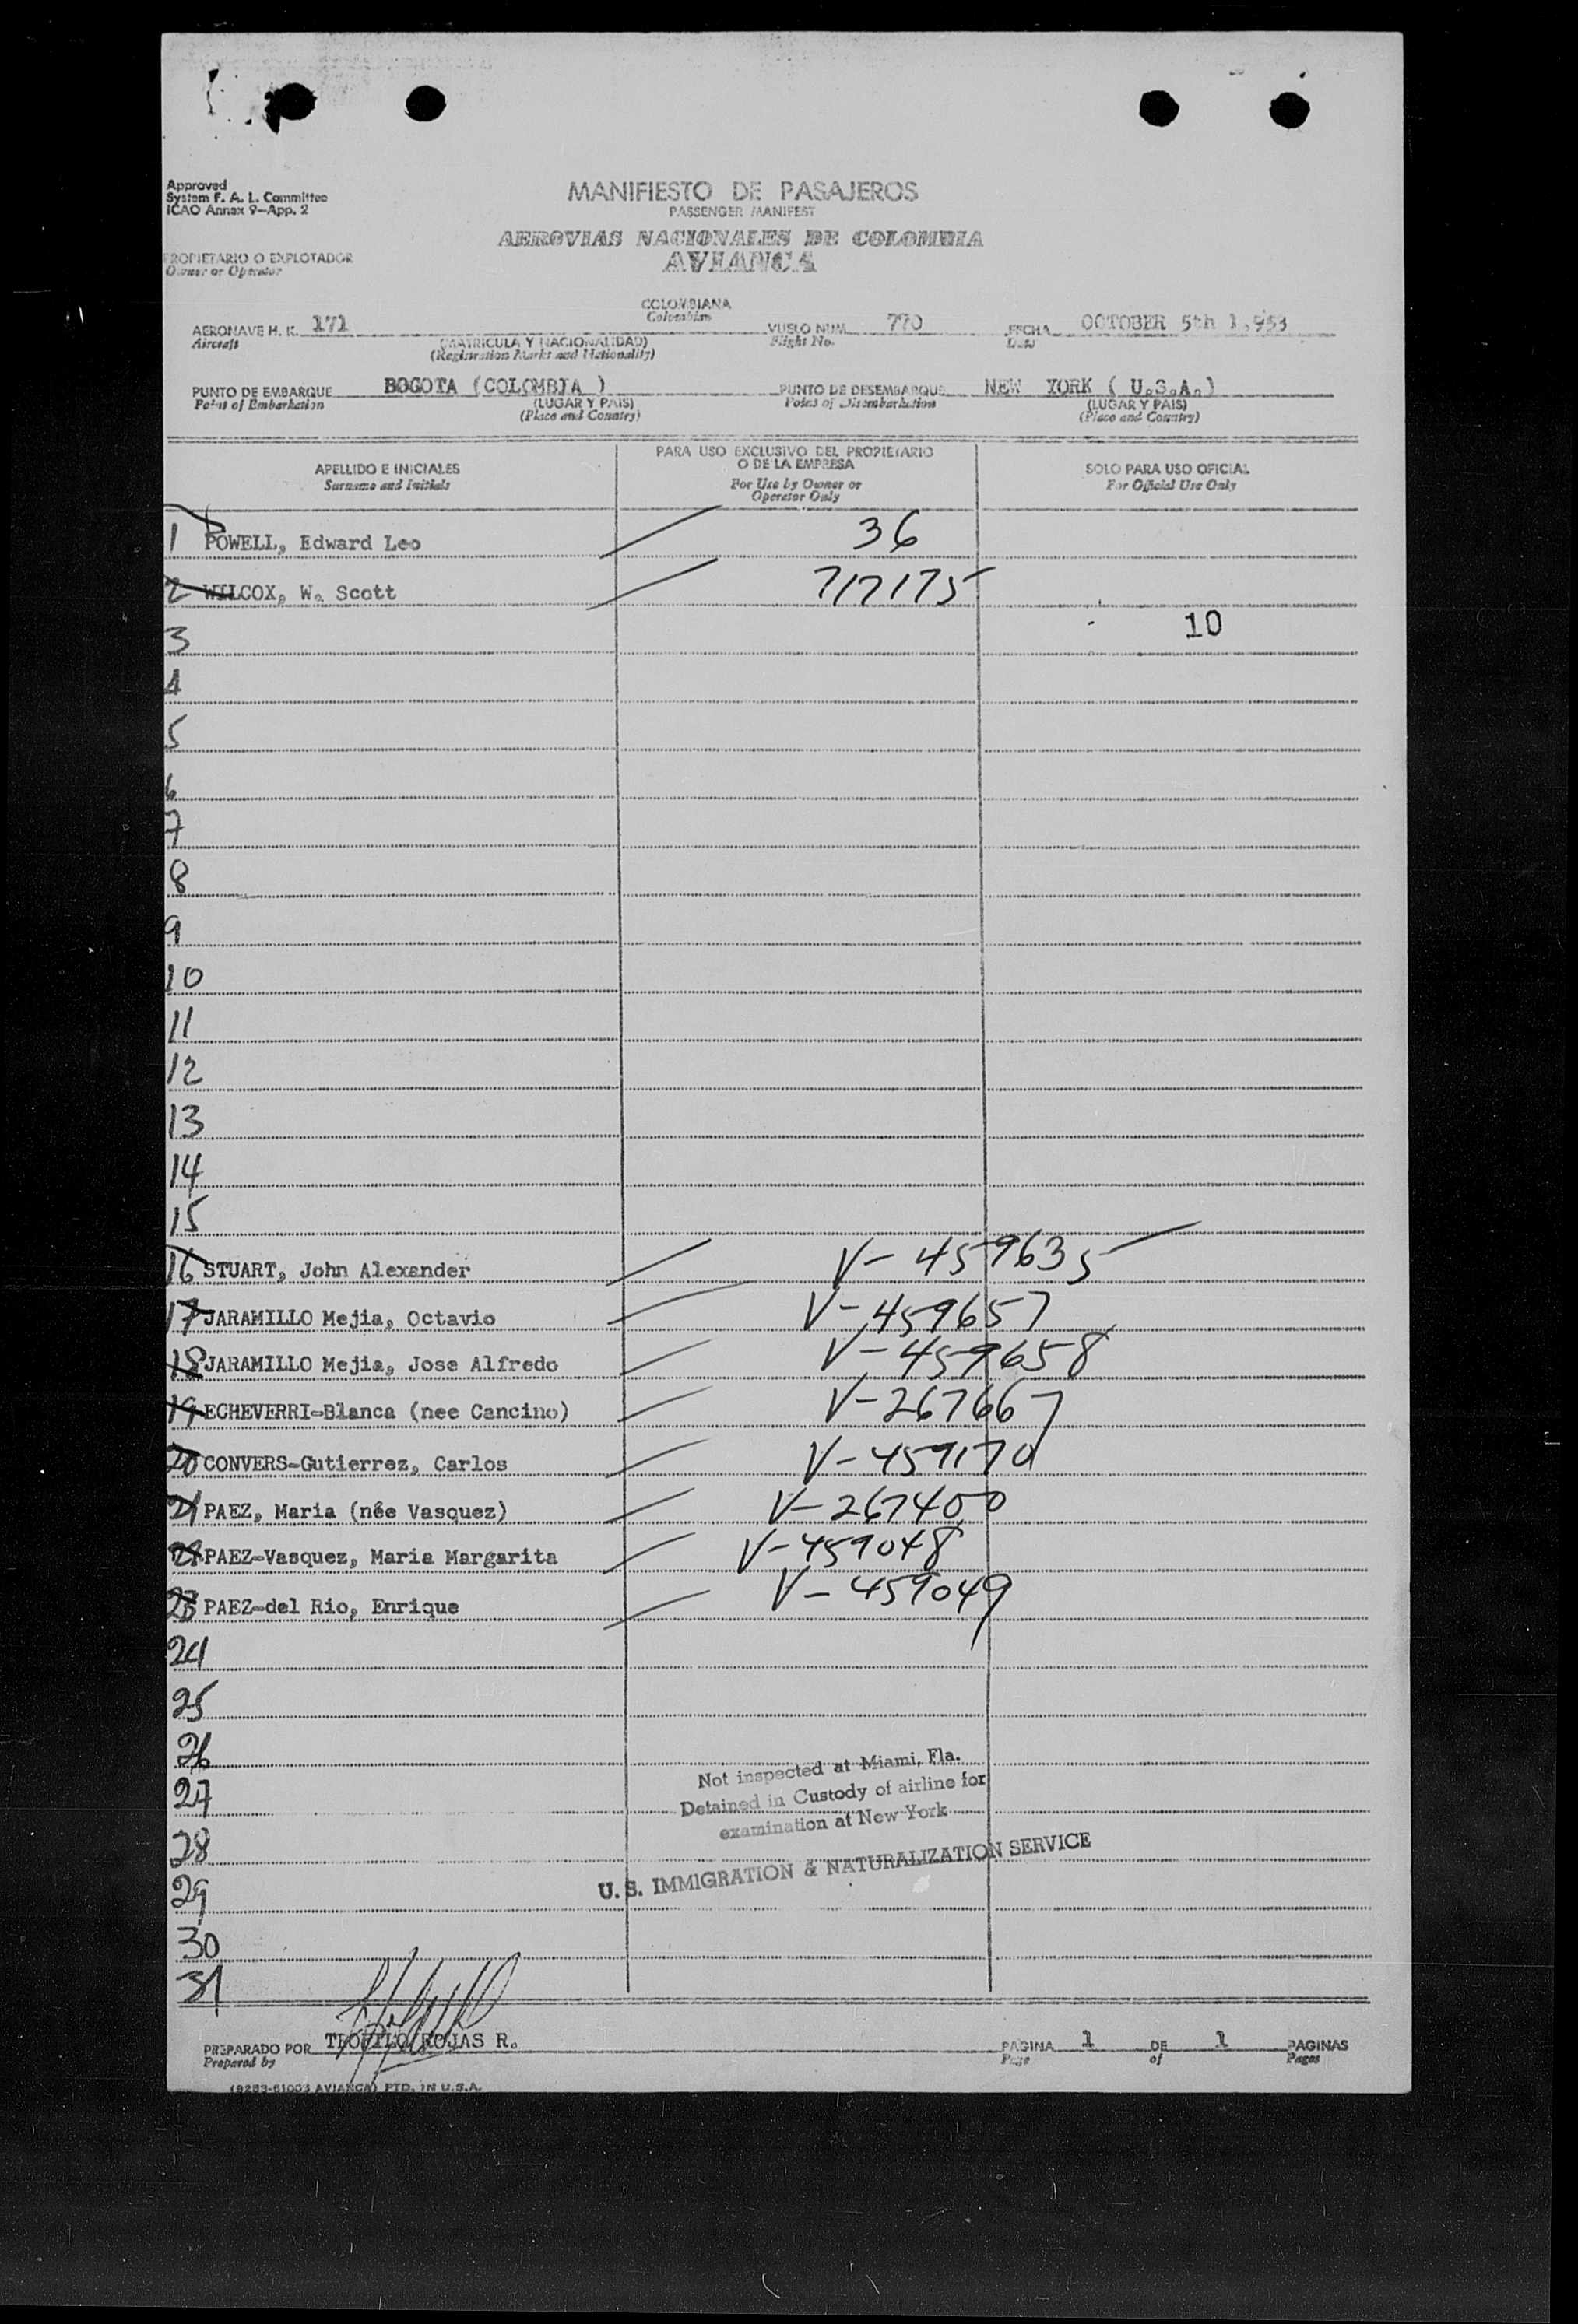 Approved
System F. A. L. Committee
ICAO Annex 9-App. 2
MANIFIESTO DE PASAJEROS
PASSENGER MANIFEST
AEROVIAS NACIONALES DE COLOMBIA
AVIANCA
PROPIETARIO O EXPLOTADOR
Owner or Operator
COLOMBIANA
Colombian
AERONAVE H. K. 171 VUELO NUM. 770 FECHA OCTOBER 5th 1,953
Aircraft (MATRICULA Y NACIONALIDAD) Flight No. Date
(Registration Marks and Nationality)
PUNTO DE EMBARQUE BOGOTA (COLOMBIA ) PUNTO DE DESEMBARQUE NEW YORK ( U.S.A.)
Point of Embarkation (LUGAR Y PAIS) Point of Disembarkation (LUGAR Y PAIS)
(Place and Country) (Place and Country)
APELLIDO E INICIALES PARA USO EXCLUSIVO DEL PROPIETARIO O DE LA EMPRESA SOLO PARA USO OFICIAL
Surname and Initials For Use by Owner or Operator Only For Official Use Only
1 POWELL, Edward Leo 36
2 WILCOX, W. Scott 717175
3 10
4
5
6
7
8
9
10
11
12
13
14
15
16 STUART, John Alexander V-459635
17 JARAMILLO Mejia, Octavio V-459657
18 JARAMILLO Mejia, Jose Alfredo V-459658
19 ECHEVERRI-Blanca (nee Cancino) V-267667
20 CONVERS-Gutierrez, Carlos V-459170
21 PAEZ, Maria (née Vasquez) V-267400
22 PAEZ-Vasquez, Maria Margarita V-459048
23 PAEZ-del Rio, Enrique V-459049
24
25
26
27
28
29
30
31
Not inspected at Miami, Fla.
Detained in Custody of airline for
examination at New York
U. S. IMMIGRATION & NATURALIZATION SERVICE
PREPARADO POR TEOFILO ROJAS R. PAGINA 1 DE 1 PAGINAS
Prepared by Page of Pages
(8283-61003 AVIANCA) PTD. IN U.S.A.